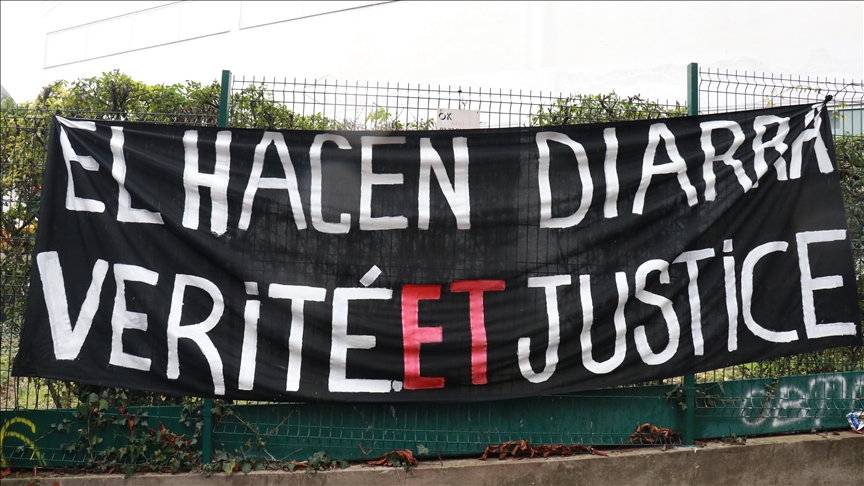 OK
EL HACEN DIARRA
VERITÉ ET JUSTICE